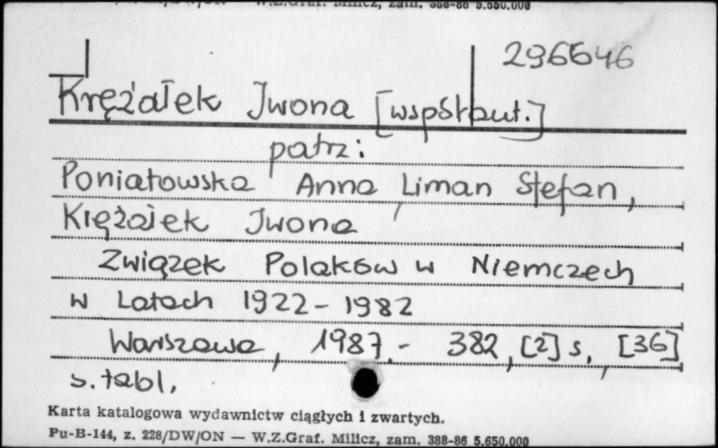 W.Z.Graf. Milicz, zam. 388-86 5.650.000
296646
Krężałek Iwona [współaut.]
patrz:
Poniatowska Anna, Liman Stefan,
Krężałek Iwona
Związek Polaków w Niemczech
w Latach 1922-1982
Warszawa, 1987.- 382, [2] s., [36]
s. tabl.
Karta katalogowa wydawnictw ciągłych i zwartych.
Pu-B-144, z. 228/DW/ON — W.Z.Graf. Milicz, zam. 388-86 5.650.000